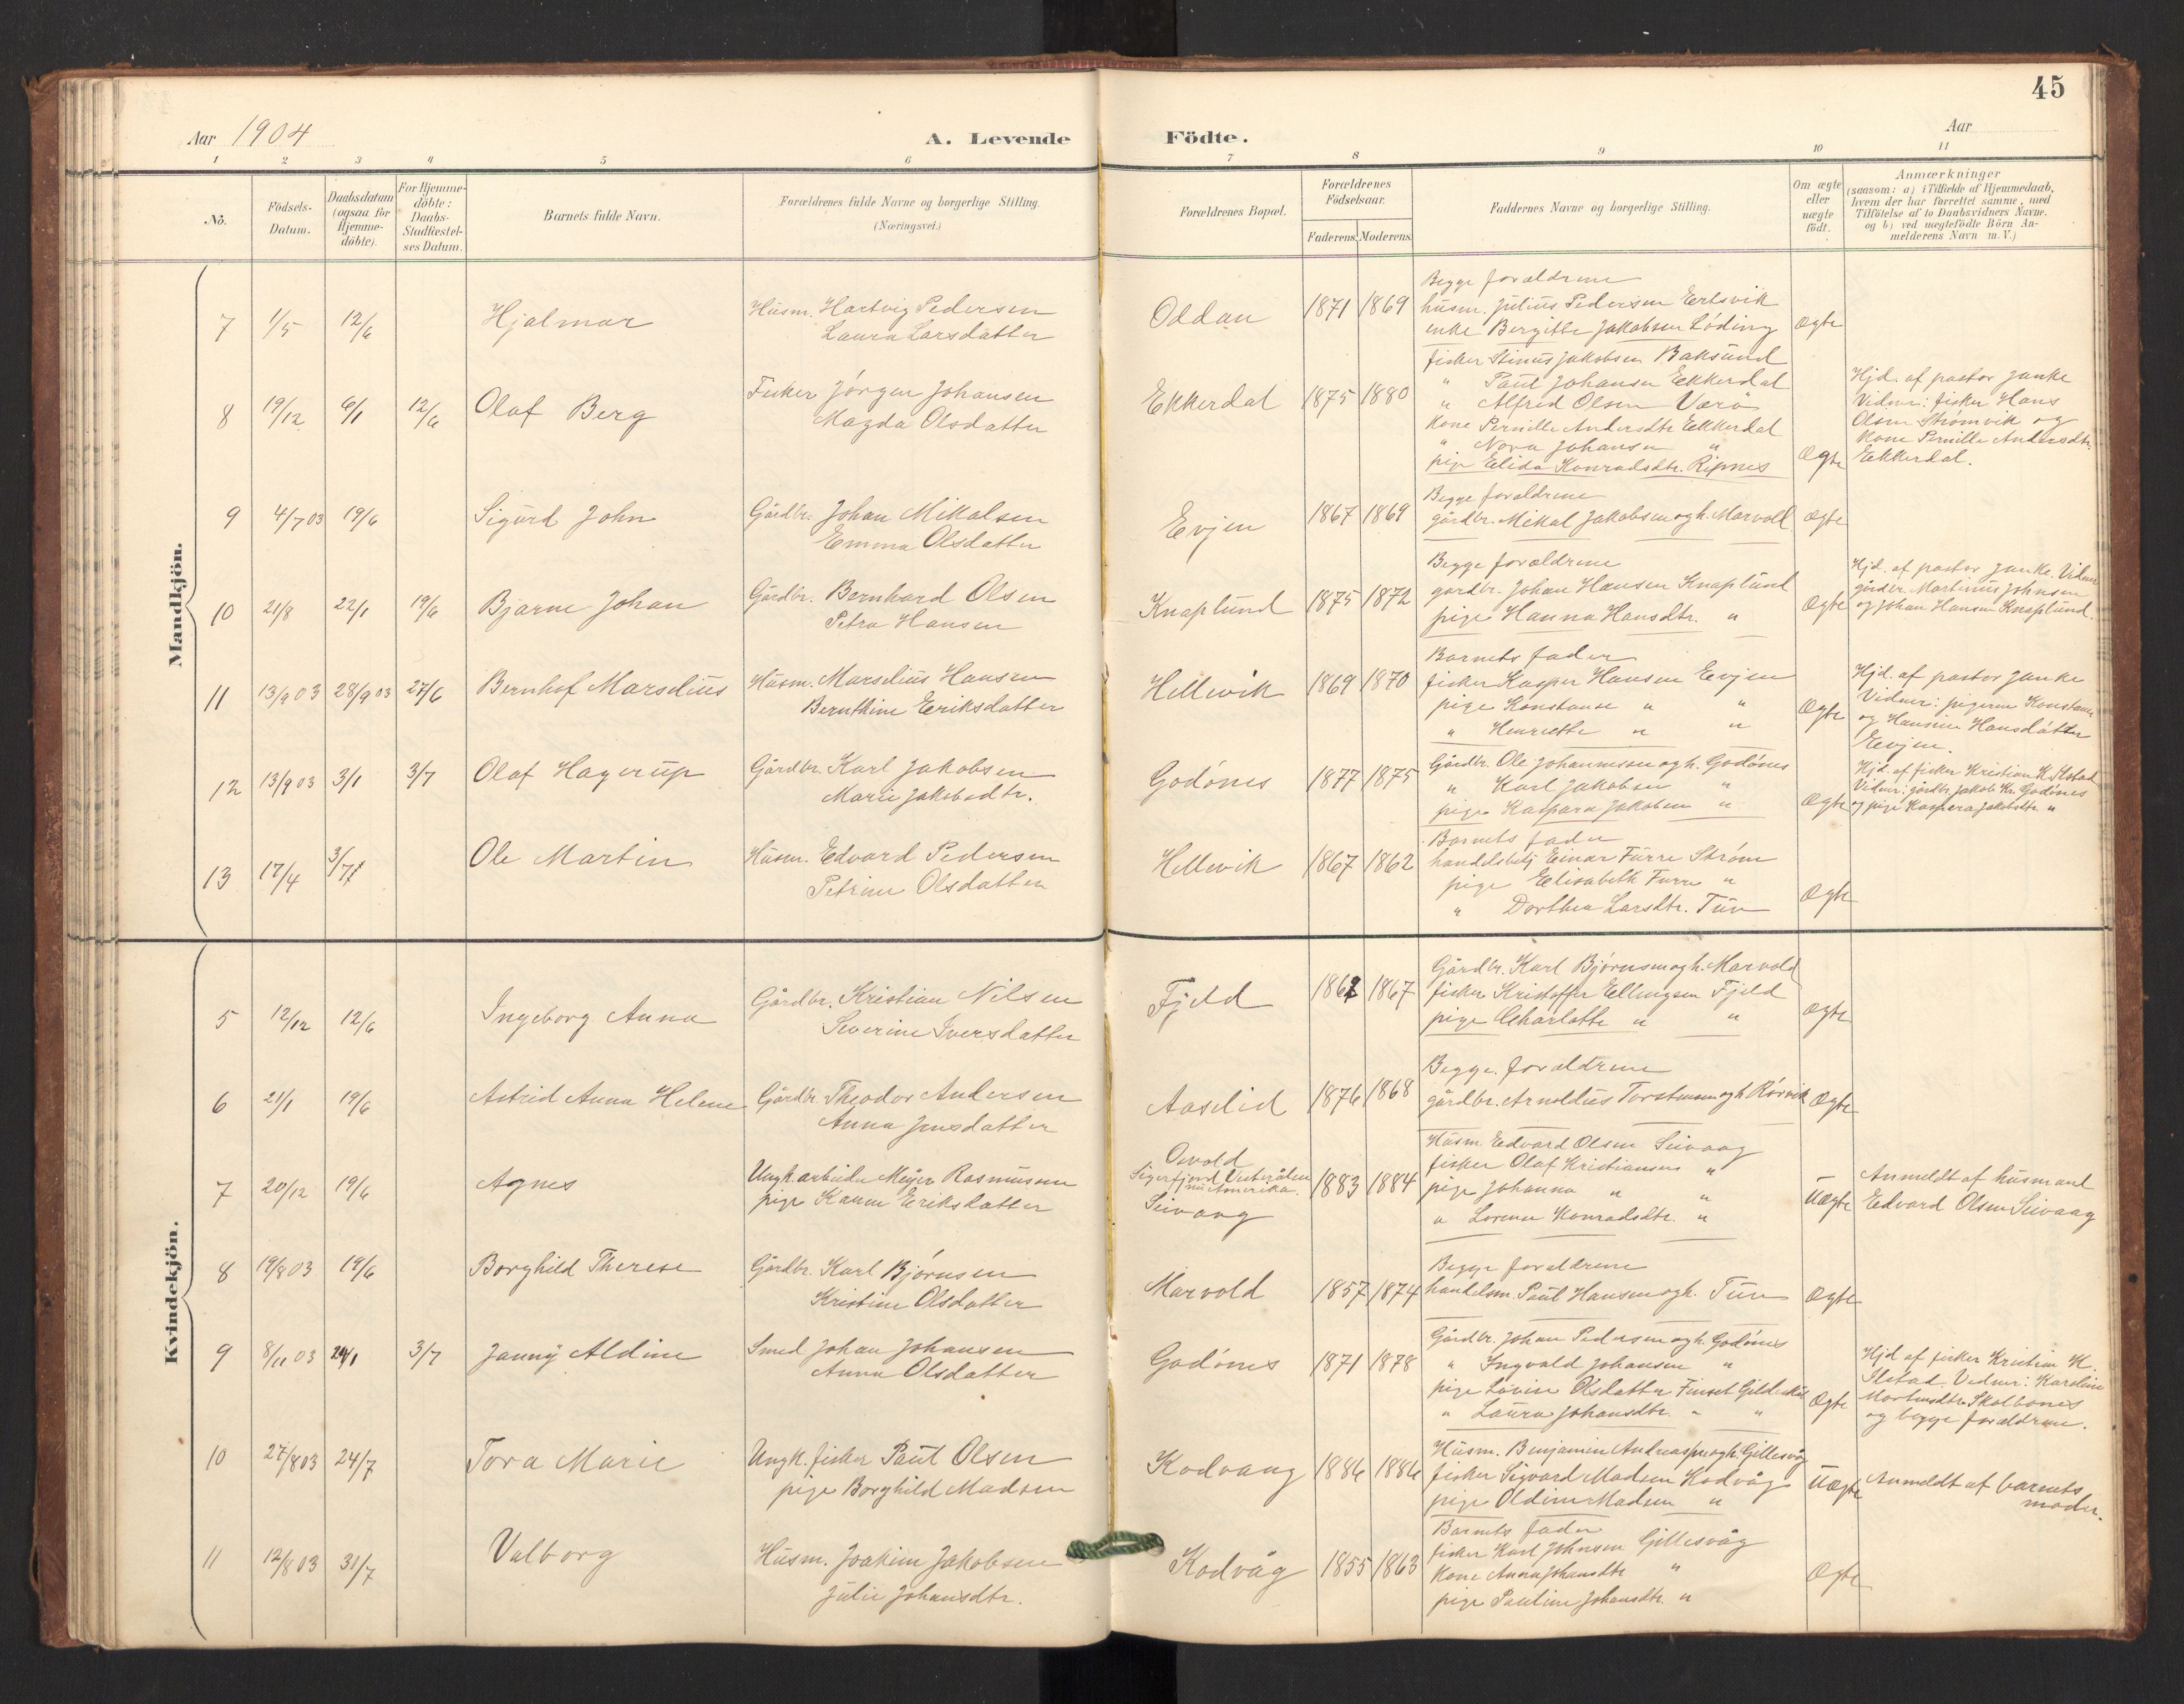 45
Aar 1904
A. Levende Födte.
Aar
1 2 3 4 5 6 7 8 9 10 11
No.
Födsels-Datum.
Daabsdatum (ogsaa for Hjemme-döbte).
For Hjemme-döbte: Daabs-Stadfæstel-ses Datum.
Barnets fulde Navn.
Forældrenes fulde Navne og borgerlige Stilling.
(Næringsvei.)
Forældrenes Bopæl.
Forældrenes Födselsaar.
Faderens. Moderens.
Faddernes Navne og borgerlige Stilling.
Om ægte eller uægte födt.
Anmærkninger
(saasom: a) i Tilfælde af Hjemmedaab,
hvem der har forrettet samme, med
Tilföielse af to Daabsvidners Navne.
og b) ved uægtefödte Börn An-
melderens Navn m. V.)
Mandkjön.
7 1/5 12/6 Hjalmar
Husm. Hartvig Pedersen
Laura Larsdatter
Oddan 1871 1869
Begge forældrene
husm. Julius Pedersen Eertsvik
enke Bergitte Jakobsen Löding
Ægte
8 19/12 6/1 12/6 Olaf Berg
Fisker Jörgen Johansen
Magda Olsdatter
Ekkerdal 1875 1880
fisker Stinus Jakobsen Baksund
" Paul Johansen Ekkerdal
" Alfred Olsen Værö
Kone Pernille Andersdtr Ekkerdal
" Nora Johansen "
pige Elida Konradsdtr. Ripnes
Ægte
Hjd. af pastor Janke
Vidner: fisker Hans
Olsen Strømvik og
Kone Pernille Andersdtr.
Ekkerdal.
9 4/7 03 19/6 Sigurd John
Gårdbr. Johan Mikalsen
Emma Olsdatter
Evjen 1867 1869
Begge forældrene
gårdbr. Mikal Jakobsen og h. Marvoll
Ægte
10 21/8 22/1 19/6 Bjarne Johan
Gårdbr. Bernhard Olsen
Petra Hansen
Knaplund 1875 1872
Begge forældrene
gardbr. Johan Hansen Knaplund
pige Hanna Hansdtr. "
Ægte
Hjd. af pastor Janke. Vidner
gårdbr. Martinus Johnsen
og Johan Hansen Knaplund.
11 13/9 03 28/9 03 27/6 Bernhof Marselius
Husm. Marselius Hansen
Bernthine Eriksdatter
Hellevik 1869 1870
Barnets fader
fisker Kasper Hansen Evjen
pige Konstanse " "
" Henriette " "
Ægte
Hjd. af pastor Janke
Vidner: pigerne Konstanse
og Hansine Hansdatter
Evjen.
12 13/9 03 3/1 3/7 Olaf Hagerup
Gårdbr. Karl Jakobsen
Marie Jakobsdtr.
Godönes 1877 1875
Gårdbr. Ole Johannesen og h. Godönes
" Karl Jakobsen "
pige Kaspara Jakobsen "
Ægte
Hjd. af fisker Kristian K. Ilstad
Vidner: gårdbr. Jakob Kr. Godönes
og pige Kaspera Jakobsdtr. "
13 17/4 3/7 Ole Martin
Husm. Edvard Pedersen
Petrine Olsdatter
Hellevik 1867 1862
Barnets fader
handelsbetj Einar Furre Ström
pige Elisabeth Furre "
" Dorthea Larsdtr. Tuv
Ægte
Kvindekjön.
5 12/12 12/6 Ingeborg Anna
Gårdbr. Kristian Nilsen
Severine Iversdatter
Fjeld 1862 1867
Gårdbr. Karl Björnsen og h. Marvold
fisker Kristoffer Ellingsen Fjeld
pige Charlotte " "
Ægte
6 21/1 19/6 Astrid Anna Helene
Gårdbr. Theodor Andersen
Anna Jensdatter
Aaselid 1876 1868
Begge forældrene
gårdbr. Arnoldus Torstensen og h Rörvik
Ægte
7 20/12 19/6 Agnes
Ungk. arbeider Meyer Rasmussen
pige Hanna Eriksdatter
Osvold
Sigerfjord Vesterålen
nu Amerika.
Seivaag
1883 1884
Husm. Edvard Olsen Seivaag
fisker Olaf Kristiansen "
pige Johanna " "
" Lorense Konradsdtr. "
Uægte
Anmeldt af husmand
Edvard Olsen Seivaag
8 19/8 03 19/6 Borghild Therese
Gårdbr. Karl Björnsen
Kristine Olsdatter
Marvold 1857 1874
Begge forældrene
handelsm. Paul Hansen og h. Tuv
Ægte
9 8/11 03 24/1 3/7 Janny Aldine
Smed Johan Johansen
Anna Olsdatter
Godönes 1871 1878
Gårdbr. Johan Pedersen og h. Godönes
" Ingvald Johansen "
pige Lovise Olsdatter Finset Gildeskål
" Laura Johansdtr. " "
Ægte
Hjd af fisker Kristian K.
Ilstad. Vidner: Karoline
Mortensdtr. Skolbones
og begge forældrene.
10 27/8 03 24/7 Tora Marie
Ungk. fisker Paul Olsen
pige Borghild Madsen
Kodvaag 1886 1886
Husm. Benjamin Andreassen og h. Gillesvåg
fisker Sigvard Madsen Kodvåg
pige Oldine Madsen "
Uægte
Anmeldt af barnets
moder.
11 12/8 03 31/7 Valborg
Husm. Joakim Jakobsen
Julie Johansdtr.
Kodvåg 1855 1863
Barnets fader
fisker Karl Johnsen Gillesvåg
Kone Anna Johansdtr "
pige Pauline Johansdtr. "
Ægte